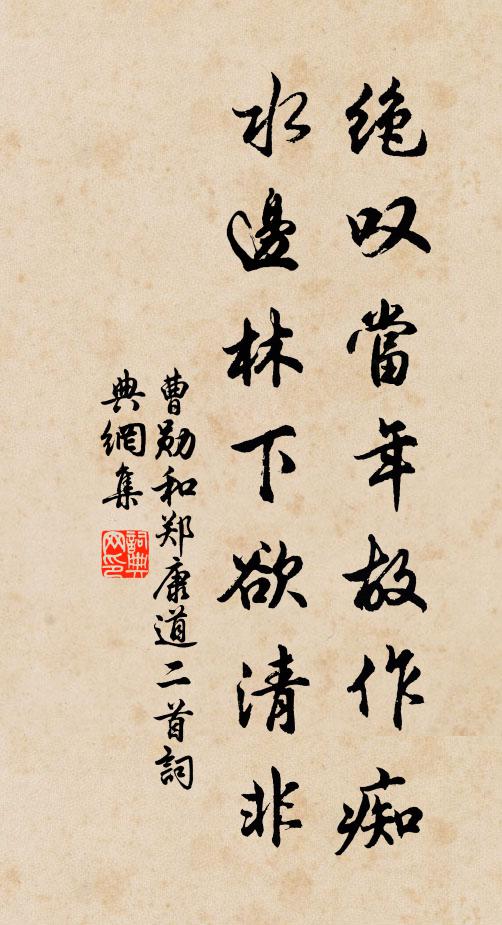 绝叹當年故作痴
水邊林下欲清非
曹勋和郑康道二首詞
典網集
詞典
网印